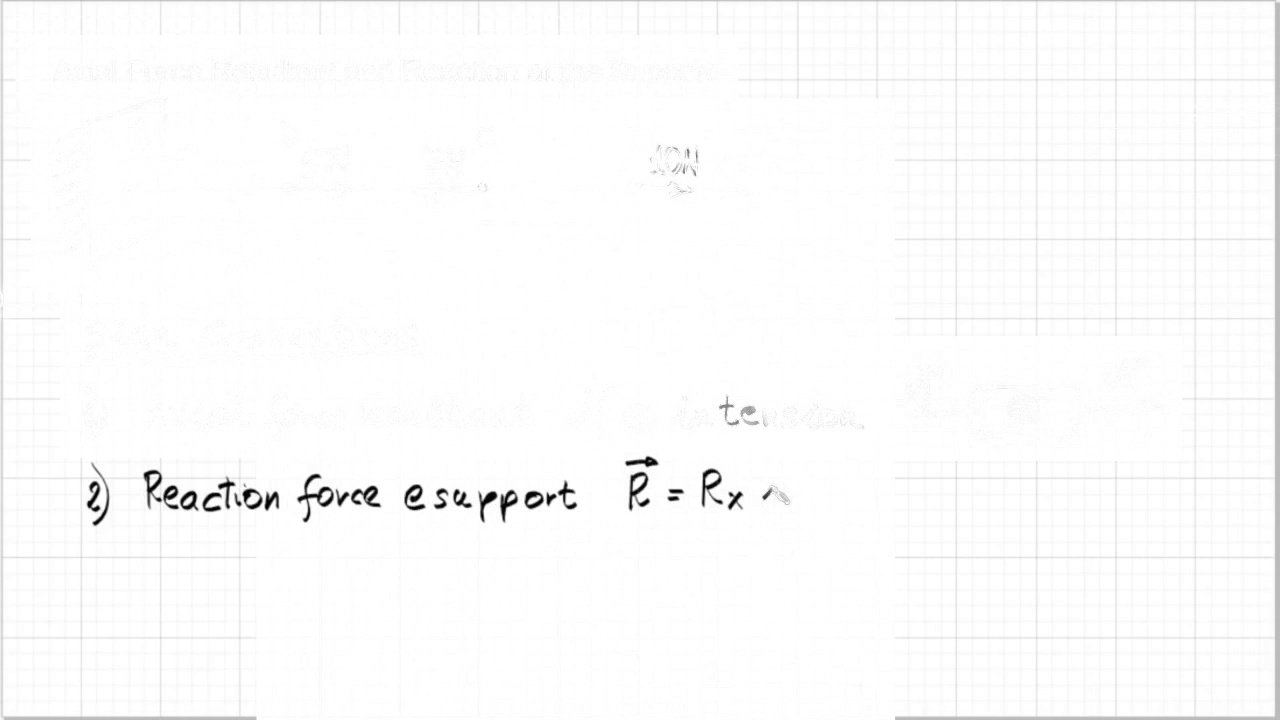 Axial Force Resultant and Reaction at the Support
5N 7N 10N
Sign Convention:
1) Axial force resultant N ⊕ in tension
2) Reaction force @ support R⃗ = Rx